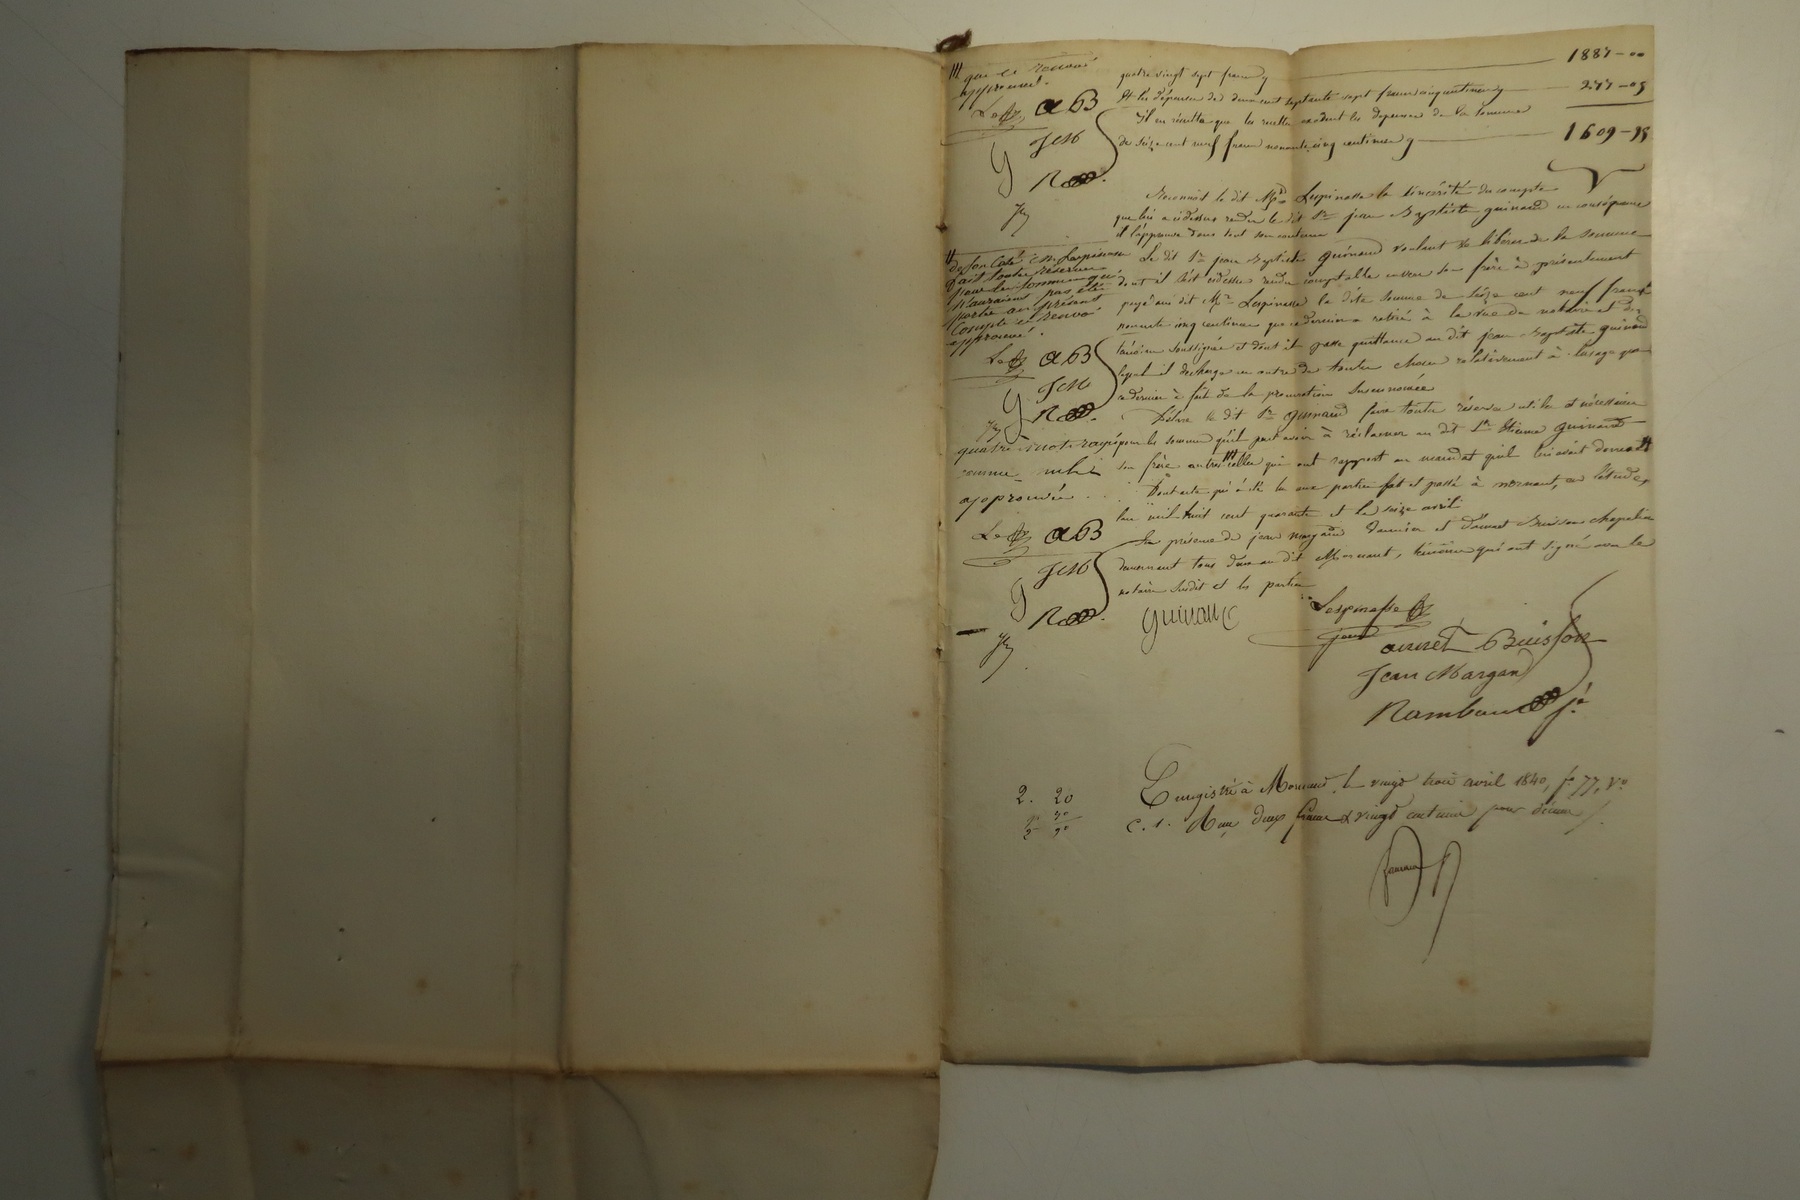 quatre vingt sept francs 1887 - 00
Et les dépenses de deux cent septante sept francs cinq centimes 277 - 05
Il en résulte que les recettes excèdent les dépenses de la somme
de seize cent neuf francs nonante cinq centimes 1609 - 95
Reconnoit le dit Mr Lespinasse la sincérité du compte
que lui a cidessus rendu le dit Sr jean Baptiste guinand en conséquence
il l'approuve dans tout son contenu
Le dit Sr jean Baptiste guinand voulant se libérer de la somme
dont il s'est cidessus rendu comptable envers son frère à présentement
payé au dit Mr Lespinasse la dite somme de seize cent neuf francs
nonante cinq centimes que ce dernier a retiré à la vue du notaire et des
témoins soussignés et dont il passe quittance au dit jean Baptiste guinand
lequel il décharge en outre de toutes choses relativement à l'usage que
ce dernier à fait de la procuration susénoncée
Déclare le dit Sr guinand faire toutes réserves utiles et nécessaires
pour les sommes qu'il peut avoir à réclamer au dit Sr Etienne guinand
son frère autres /// celles qui ont rapport au mandat qu'il lui avait donné //
Dont acte qui à été lu aux parties fait et passé à mornant, en l'étude,
l'an mil huit cent quarante et le seize avril
En présence de jean margand et annet Buisson chapelier
demeurant tous deux au dit Mornant, témoins qui ont signé avec le
notaire susdit et les parties
/// que ce renvoi
approuvé.
Le aB
JM
g Ra
// de son Coté Mr Lespinasse
fait toutes réserves
pour les sommes qui
n'auraient pas été
porté au présent
Compte ce renvoi
approuvé.
Le aB
JM
g Ra
quatre mots rayés
comme nuls
approuvés
Le aB
JM
g Ra
guinand Lespinasse
annet Buisson
Jean Margand
Rambaud
2. 20 Enregistré à Mornant, le vingt trois avril 1840, fo 77, Vo
c. 1. Reçu deux francs & vingt centimes pour décime